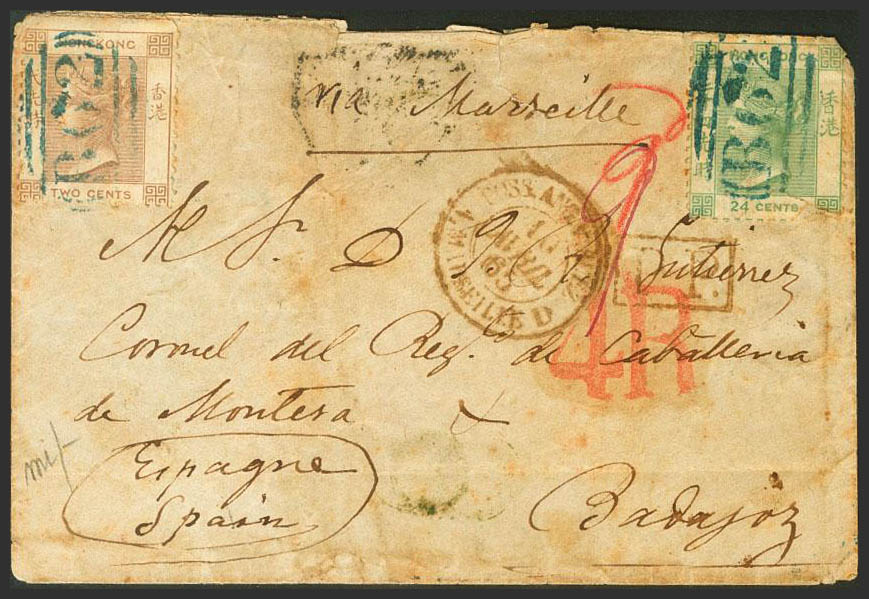 HONGKONG
香港
TWO CENTS
B62
via Marseille
HONG KONG
香港
24 CENTS
B62
POSS. ANG.
MARSEILLE
P.
4R
M. Sr. D. Gutierrez
Coronel del Reg.º de Caballeria
de Montesa &
Espagne
Spain
Badajoz